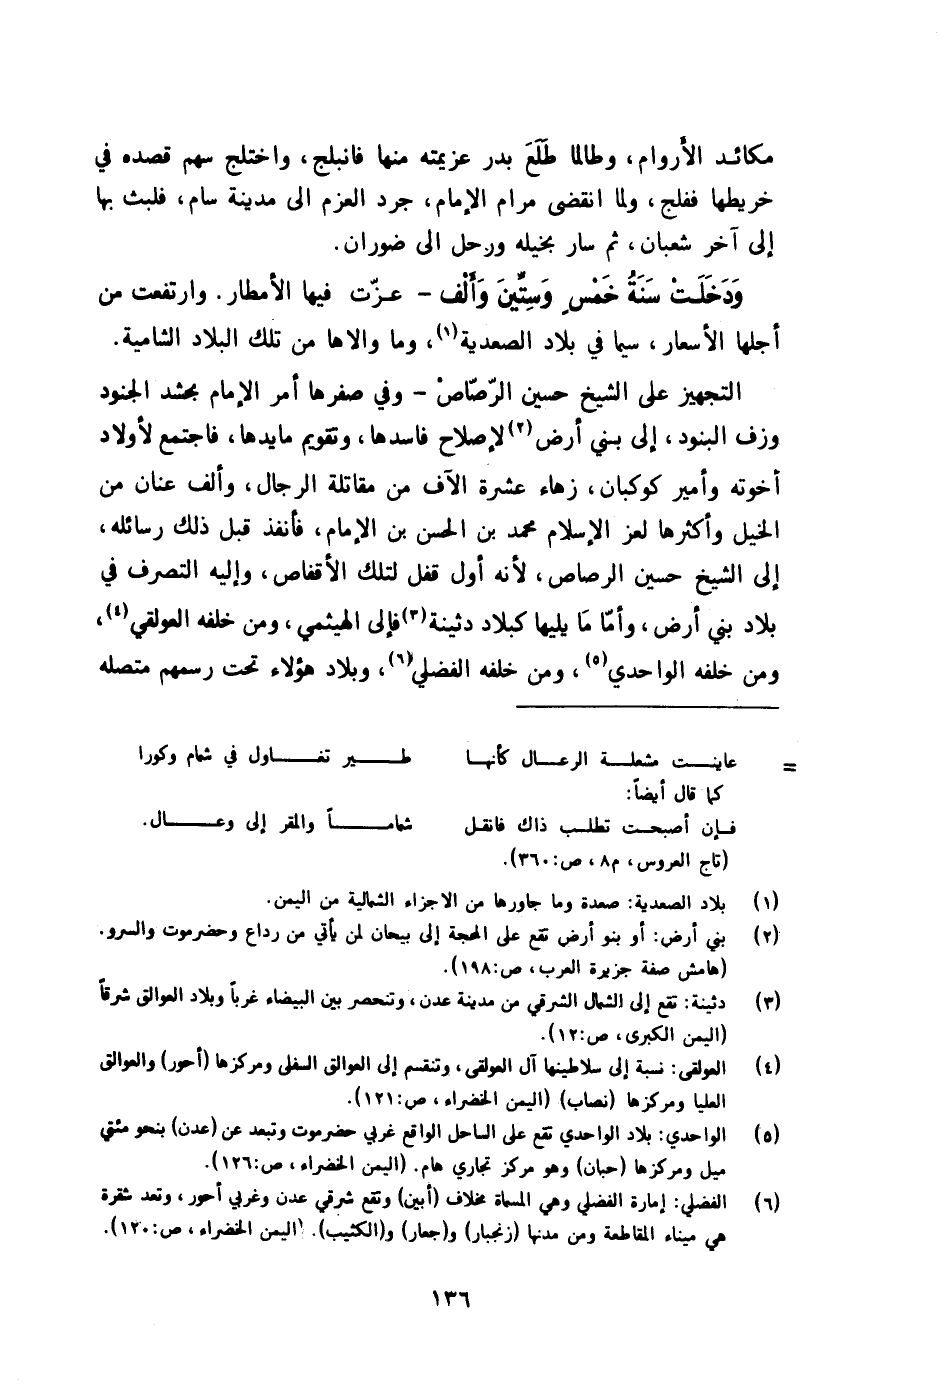 مكائد الأروام، وطالما طَلَعَ بدر عزيمته منها فانبلج، واختلج سهم قصده في
خريطها ففلج، ولما انقضى مرام الإمام، جرد العزم الى مدينة سام، فلبث بها
إلى آخر شعبان، ثم سار بخيله ورحل الى ضوران.
وَدَخَلَتْ سَنَةُ خَمْسٍ وَسِتِّينَ وَأَلْف - عزّت فيها الأمطار. وارتفعت من
أجلها الأسعار، سيما في بلاد الصعدية(١)، وما والاها من تلك البلاد الشامية.
التجهيز على الشيخ حسين الرّصّاصْ - وفي صفرها أمر الإمام بحشد الجنود
وزف البنود، إلى بني أرض(٢) لإصلاح فاسدها، وتقويم مايدها، فاجتمع لأولاد
أخوته وأمير كوكبان، زهاء عشرة الآف من مقاتلة الرجال، وألف عنان من
الخيل وأكثرها لعز الإسلام محمد بن الحسن بن الإمام، فأنفذ قبل ذلك رسائله،
إلى الشيخ حسين الرصاص، لأنه أول قفل لتلك الأقفاص، وإليه التصرف في
بلاد بني أرض، وأمّا مَا يليها كبلاد دثينة(٣) فإلى الهيثمي، ومن خلفه العولقي(٤)،
ومن خلفه الواحدي(٥)، ومن خلفه الفضلي(٦)، وبلاد هؤلاء تحت رسمهم متصله
= عاينـت مشعلـة الرعـال كأنهـا طـير تغـاول في شمام وكورا
كما قال أيضاً:
فـإن أصبحـت تطلـب ذاك فانقـل شمامـاً والمقر إلى وعـال.
(تاج العروس، م٨، ص:٣٦٠).
(١) بلاد الصعدية: صعدة وما جاورها من الاجزاء الشمالية من اليمن.
(٢) بني أرض: أو بنو أرض تقع على المحجة إلى بيحان لمن يأتي من رداع وحضرموت والسرو.
(هامش صفة جزيرة العرب، ص:١٩٨).
(٣) دثينة: تقع إلى الشمال الشرقي من مدينة عدن، وتنحصر بين البيضاء غرباً وبلاد العوالق شرقاً
(اليمن الكبرى، ص:١٢).
(٤) العولقي: نسبة إلى سلاطينها آل العولقي، وتنقسم إلى العوالق السفلى ومركزها (أحور) والعوالق
العليا ومركزها (نصاب) (اليمن الخضراء، ص:١٢١).
(٥) الواحدي: بلاد الواحدي تقع على الساحل الواقع غربي حضرموت وتبعد عن (عدن) بنحو مئتي
ميل ومركزها (حبان) وهو مركز تجاري هام. (اليمن الخضراء، ص:١٢٦).
(٦) الفضلي: إمارة الفضلي وهي المسماة مخلاف (أبين) وتقع شرقي عدن وغربي أحور، وتعد شقرة
هي ميناء المقاطعة ومن مدنها (زنجبار) و(جعار) و(الكثيب). (اليمن الخضراء، ص:١٢٠).
١٣٦